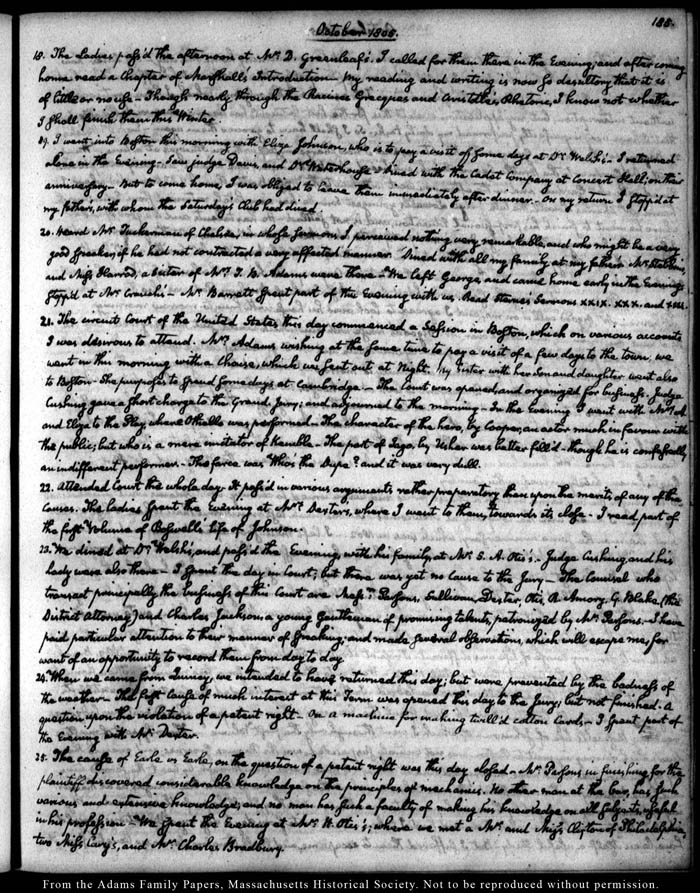 October 1805.
185.
18. The Ladies pass'd the afternoon at Mr. D. Greenleaf's. I called for them there in the Evening; and after coming
home read a Chapter of Marshall's Introduction. My reading and writing is now so desultory that it is
of little or no use — Though nearly through the Racines Grecques and Aristotle's Rhetoric, I know not whether
I shall finish them this Winter.
19. I went into Boston this morning with Eliza Johnson, who is to pay a visit of some days at Dr. Welsh's — I returned
alone in the Evening — Saw judge Davis, and Dr. Waterhouse — dined with the Cadet Company at Concert Hall; on their
anniversary. But to come home, I was obliged to leave them immediately after dinner — On my return I stopp'd at
my father's, with whom the Saturday's Club had dined.
20. Heard Mr. Tuckerman of Chelsea, in whose sermons I perceived nothing very remarkable, and who might be a very
good speaker, if he had not contracted a very affected manner. Dined with all my family, at my father's. Mr. Stebbins,
and Miss Harrod, a sister of Mrs. T. B. Adams were there — We left George, and came home early in the Evening
stopp'd at Mr. Cranch's — Mr. Barrett spent part of the Evening with us. Read Sterne's Sermons XXIX. XXX. and
21. The circuit Court of the United States, this day commenced a Session in Boston, which on various accounts
I was desirous to attend. Mrs. Adams wishing at the same time to pay a visit of a few days to the town, we
went in this morning with a Chaise, which was sent out at Night. My Sister with her Son and daughter went also
to Boston — She purposes to spend some days at Cambridge — The Court was opened and organized for business. Judge
Cushing gave a short charge to the Grand Jury; and adjourned to the morning — In the Evening I went with Mrs. Ad.
and Eliza to the Play, where Othello was performed — The character of the hero, by Cooper, an actor much in favour with
the public; but who is a mere imitator of Kemble — The part of Iago, by Usher was better fill'd — though he is confessedly
an indifferent performer. The farce was "Who's the Dupe? and it was very dull.
22. Attended Court the whole day. It pass'd in various arguments rather preparatory than upon the merits of any of the
Causes. The ladies spent the Evening at Mrs. Dexter's, where I went to them, towards its close — I read part of
the first Volume of Boswell's Life of Johnson.
23. We dined at Dr. Welsh's, and pass'd the Evening, with his family, at Mr. S. A. Otis's. — Judge Cushing and his
Lady were also there — I spent the day in Court; but there was yet no Cause to the Jury — The Counsel who
transact principally the business of this Court are Messrs. Parsons, Sullivan, Dexter, Otis, R. Amory, G. Blake (the
District Attorney) and Charles Jackson, a young Gentleman of promising talents, patronized by Mr. Parsons. I have
paid particular attention to their manner of speaking; and made several observations, which will escape me, for
want of an opportunity to record them from day to day
24. When we came from Quincy, we intended to have returned this day; but were prevented by the badness of
the weather — The first cause of much interest at this Term was opened this day to the Jury; but not finished. A
question upon the violation of a patent right — On a machine for making twill'd cotton Cards — I spent part of
the Evening with Mr. Dexter.
25. The cause of Earle vs Earle, on the question of a patent right was this day closed — Mr. Parsons in finishing for the
plaintiff discovered considerable knowledge on the principles of mechanics. No other man at the bar, has such
various and extensive knowledge; and no man has such a faculty of making his knowledge on all subjects, useful
in his profession — We spent the Evening at Mr. H. Otis's; where we met a Mr. and Miss Clifton of Philadelphia,
two Miss Cary's, and Mr. Charles Bradbury.
From the Adams Family Papers, Massachusetts Historical Society. Not to be reproduced without permission.